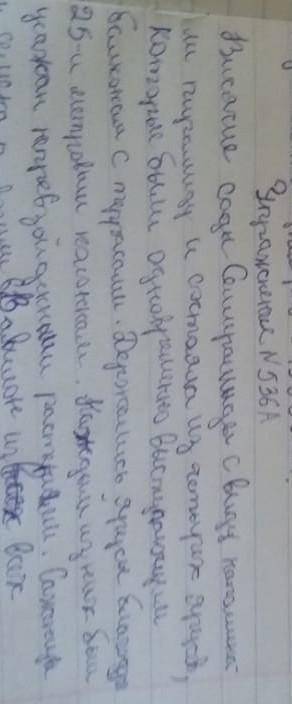 Упражнение N 536 А
Висячие сады Семирамиды с виду напомина
ли пирамиду и состояла из четырех ярусов,
которые были одновременно выступающим
балконам с террасами. Держались ярусы благода
25-и метровым колоннам. Каждый из них был
усажен непревзойденными растениями. Саженцы
Вавилон из всех